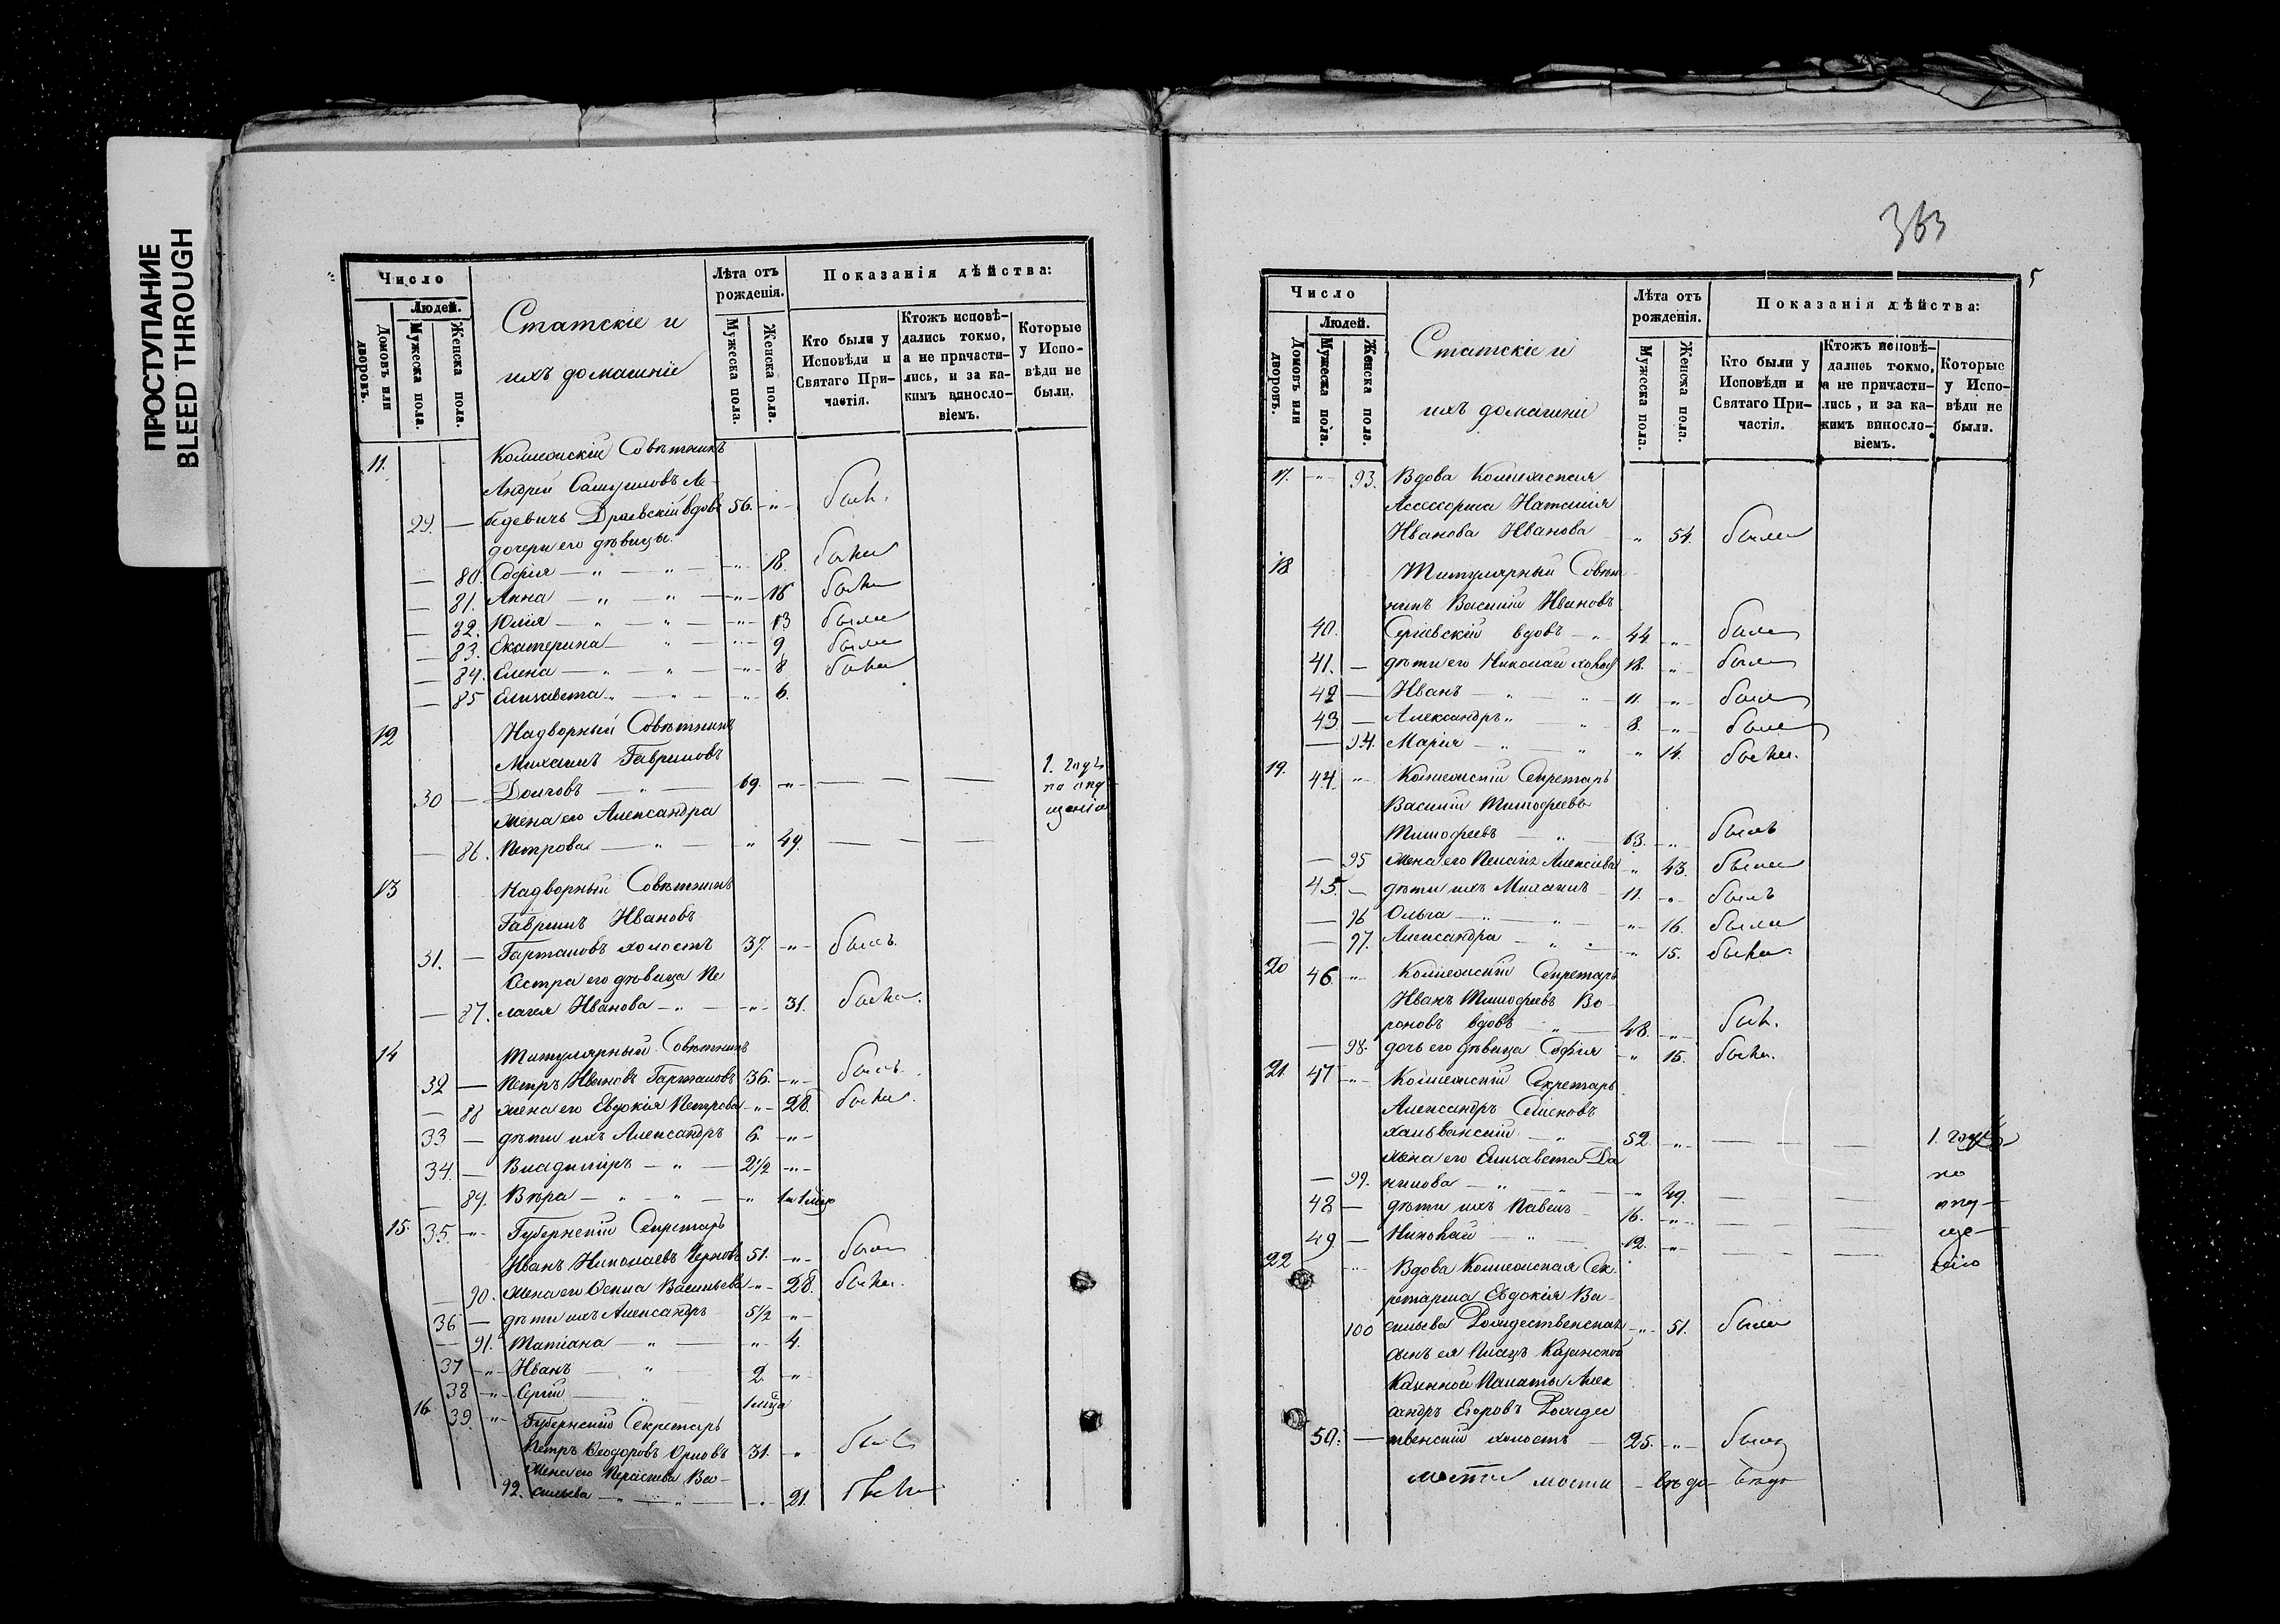 ПРОСТУПАНИЕ
BLEED THROUGH
Число
Людей.
Домовъ или дворовъ.
Мужеска пола.
Женска пола.
Статскіе и
ихъ домашніе
Лѣта отъ
рожденія.
Мужеска пола.
Женска пола.
Показанія дѣйства:
Кто были у
Исповѣди и
Святаго При-
частія.
Ктожъ исповѣ-
дались токмо,
а не причасти-
лись, и за ка-
кимъ виносло-
віемъ.
Которые
у Испо-
вѣди не
были.
11. Коллежскій Совѣтникъ
Андрей
29. — Драевскій вдовъ 56. -„- былъ.
дочери его дѣвицы.
— 80. Софія — „ — „ — -„- 18. была
— 81. Анна — „ — „ — -„- 16 была
— 82. Юлія — „ — „ — -„- 13 была
— 83. Екатерина — „ — -„- 9 была
— 84. Елена — „ — „ — -„- 8 была
— 85 Елизавета „ — „ — -„- 6.
12 Надворный Совѣтникъ
Михаилъ Гавриловъ
30 — Долговъ — „ — 69. -„- — — 1. годъ
по опу
щенію
жена его Александра
— 86. Петрова — „ — „ 49. — — —
13 Надворный Совѣтникъ
Гавріилъ Ивановъ
31. — Гарталовъ холостъ 37. -„- былъ.
Сестра его дѣвица Пе
— 87. лагея Иванова — „ — -„- 31. была.
14 Титулярный Совѣтникъ
32 — Петръ Ивановъ Гарталовъ 36. -„- былъ.
— 88 жена его Евдокія Петрова -„- 28. была.
33 — дѣти ихъ Александръ 6. -„-
34. — Владиміръ — „ — 2½ -„-
— 89. Вѣра — „ — „ — „
15. 35. -„- Губернскій Секретарь
Иванъ Николаевъ Черновъ 51. -„- былъ
— 90. жена его Васильева -„- 28. была.
36 — дѣти ихъ Александръ 5½ -„-
— 91. Татіана — „ — „ 4.
37 -„- Иванъ — „ — 2 -„-
38 -„- Сергій — „ 1 мѣца
16 39. -„- Губернскій Секретарь
Петръ Ѳеодоровъ Орловъ 31. -„ былъ
жена его Параскева Ва-
92. сильева — „ — „ — -„- 21. была
363
5
Число
Людей.
Домовъ или дворовъ.
Мужеска пола.
Женска пола.
Статскіе и
ихъ домашніе
Лѣта отъ
рожденія.
Мужеска пола.
Женска пола.
Показанія дѣйства:
Кто были у
Исповѣди и
Святаго При-
частія.
Ктожъ исповѣ-
дались токмо,
а не причасти-
лись, и за ка-
кимъ виносло-
віемъ.
Которые
у Испо-
вѣди не
были.
17. -„- 93. Вдова Коллежская
Ассесорша Наталия
Иванова Иванова „ 54. была
18 Титулярный Совѣт-
никъ Василій Ивановъ
40. Сергіевскій вдовъ — „ 44. -„- былъ
41. — дѣти его Николай холос 18. -„- былъ
42 — Иванъ — „ — „ 11. -„- былъ
43. — Александръ „ — „ 8. -„- былъ
— 94. Марія — „ — „ „ 14. была.
19. 44. „ Коллежскій Секретарь
Василій Тимофеевъ
Тимофеевъ — „ — 63. -„ былъ
— 95 жена его Алексіева „ 43. была
45. — дѣти ихъ Михаилъ 11. -„- былъ
— 96 Ольга — „ — „ -„- 16. была
— 97. Александра — „ -„ 15. была.
20 46. „ Коллежскій Секретарь
Иванъ Тимофеевъ Во-
роновъ вдовъ — „ — 48. -„- былъ.
— 98. дочь его дѣвица Софія -„ 15. была.
21 47 -„- Коллежскій Секретарь
Александръ Семеновъ
52. -„- — — 1. годъ
жена его Елизавета Да
— 99. нилова — „ — „ 49. — — по
48 — дѣти ихъ Павелъ 16. -„- — — опу-
49 — Николай — „ — 12. -„ — — ще-
нію
22 -„- Вдова Коллежская Сек-
ретарша Евдокія Ва-
100 сильева Рождественская -„- 51. была
сынъ ея Писецъ Казанской
Казенной Палаты Алек
сандръ Егоровъ Рождес
50. — твенскій холостъ — 25. -„- былъ